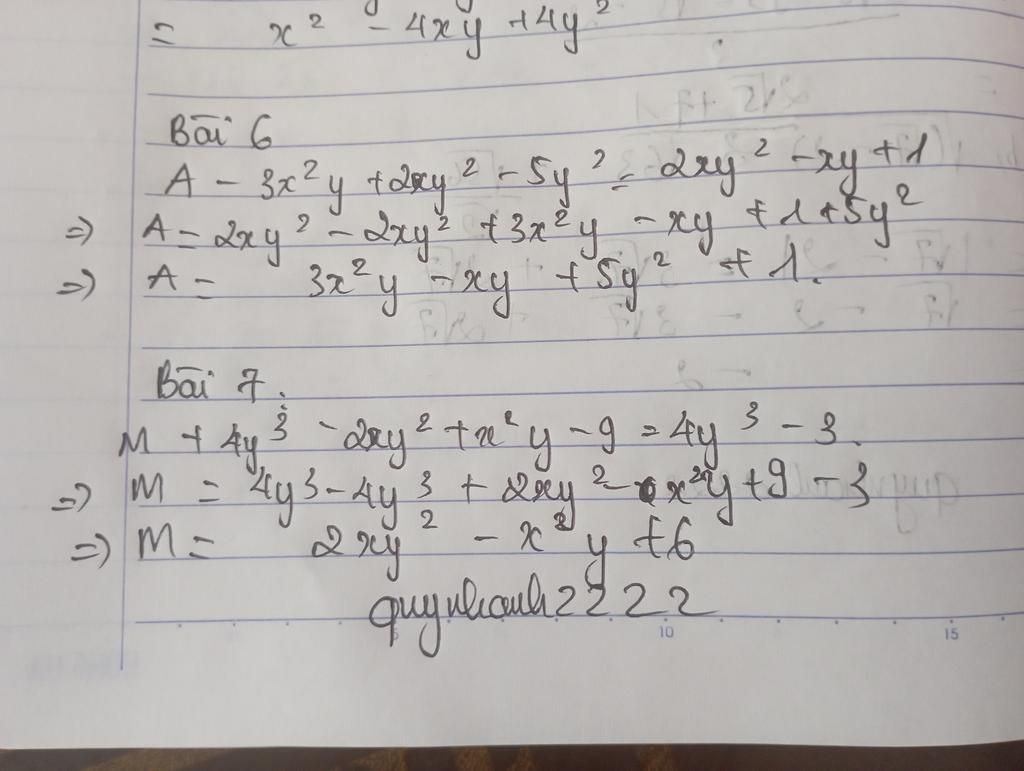 = x² - 4xy + 4y²
Bài 6
A - 3x²y + 2xy² - 5y² = 2xy² - xy + 1
=> A = 2xy² - 2xy² + 3x²y - xy + 1 + 5y²
=> A = 3x²y - xy + 5y² + 1.
Bài 7:
M + 4y³ - 2xy² + x²y - 9 = 4y³ - 3.
=> M = 4y³ - 4y³ + 2xy² - x²y + 9 - 3
=> M = 2xy² - x²y + 6
quynhanh2222
10 15